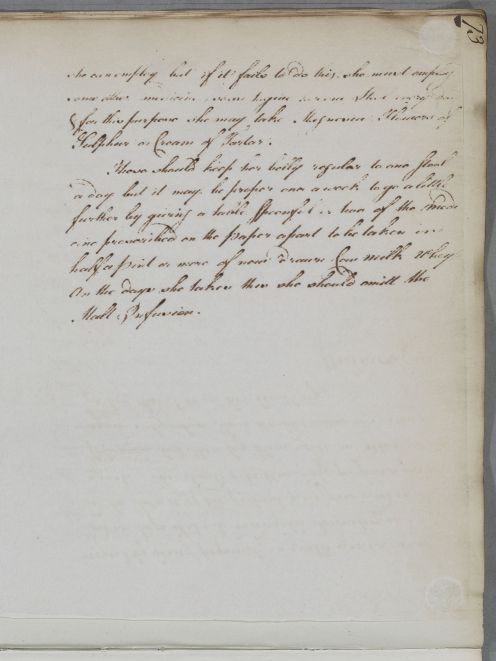 73
she can employ but if it fails to do this, she must employ
some other medicine
for this purpose she may take Magnesia Flowers of
Sulphur or Cream of Tartar.
These should keep her belly regular to one stool
a day but it may be proper once a week to go a little
further by giving a table Spoonful or two of the
prescribed on the paper apart to be taken in
half a pint or more of new drawn Cow Milk Whey
On the days she takes this she should omitt the
Malt Infusion.